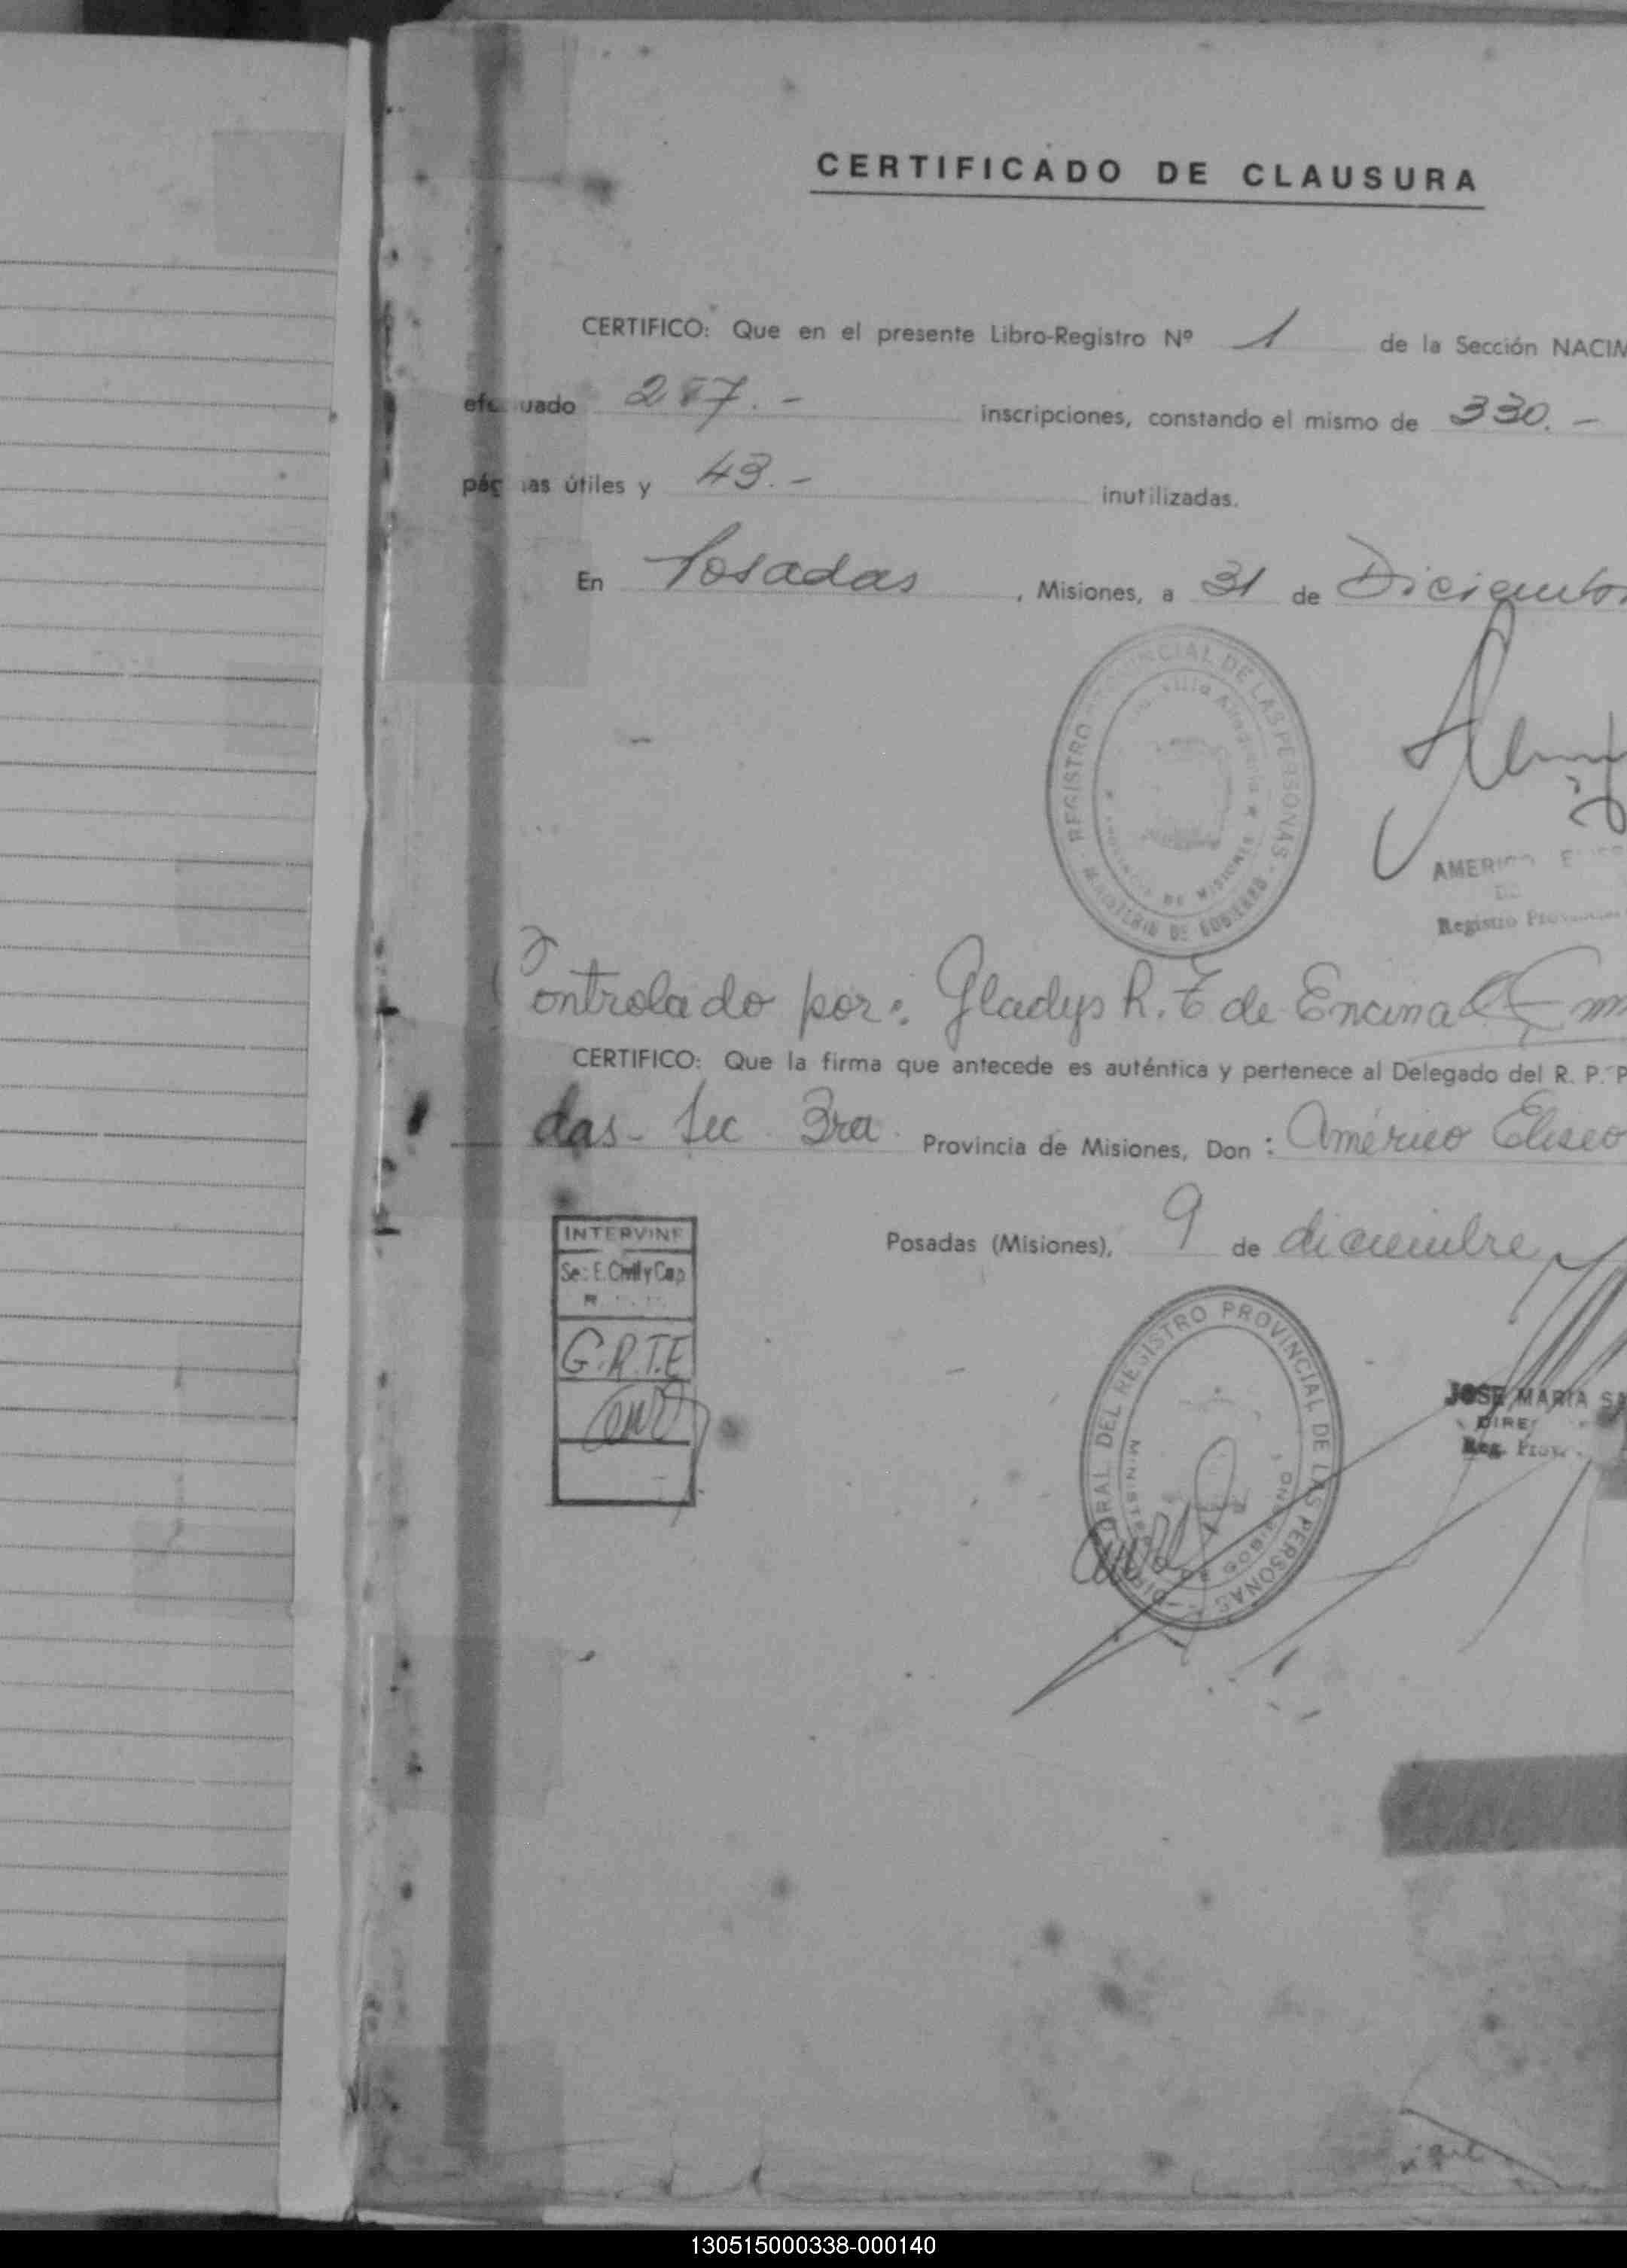 CERTIFICADO DE CLAUSURA
CERTIFICO: Que en el presente Libro-Registro Nº 1 de la Sección NACIM
efectuado 287.- inscripciones, constando el mismo de 330.-
páginas útiles y 43.- inutilizadas.
En Posadas, Misiones, a 31 de Diciembre
REGISTRO PROVINCIAL DE LAS PERSONAS
MINISTERIO DE GOBIERNO
PROVINCIA DE MISIONES
AMERICO
Registro Provincial
Controlado por: Gladys R. T de Encina
CERTIFICO: Que la firma que antecede es auténtica y pertenece al Delegado del R. P. P
das - Sec 3ra. Provincia de Misiones, Don: Américo Eliseo
Posadas (Misiones), 9 de diciembre
INTERVINE
Sec E. Civil y Cap
G.R.T.E
DEL REGISTRO PROVINCIAL DE LAS PERSONAS
MINISTERIO DE GOBIERNO
JOSE MARIA SA
DIRE
Reg. Prov
130515000338-000140